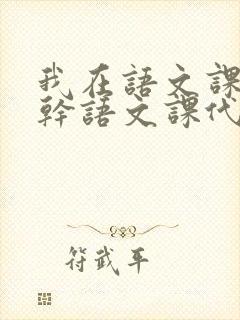 我在語文課
幹語文課代
符武平